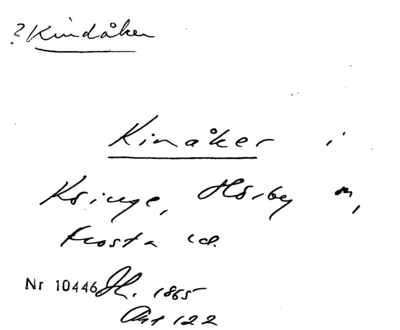 ? Kindåker
Kinåker i
Ksinge, Hörby sn,
Frosta hd.
Nr 10446 H. 1865
Akt 122